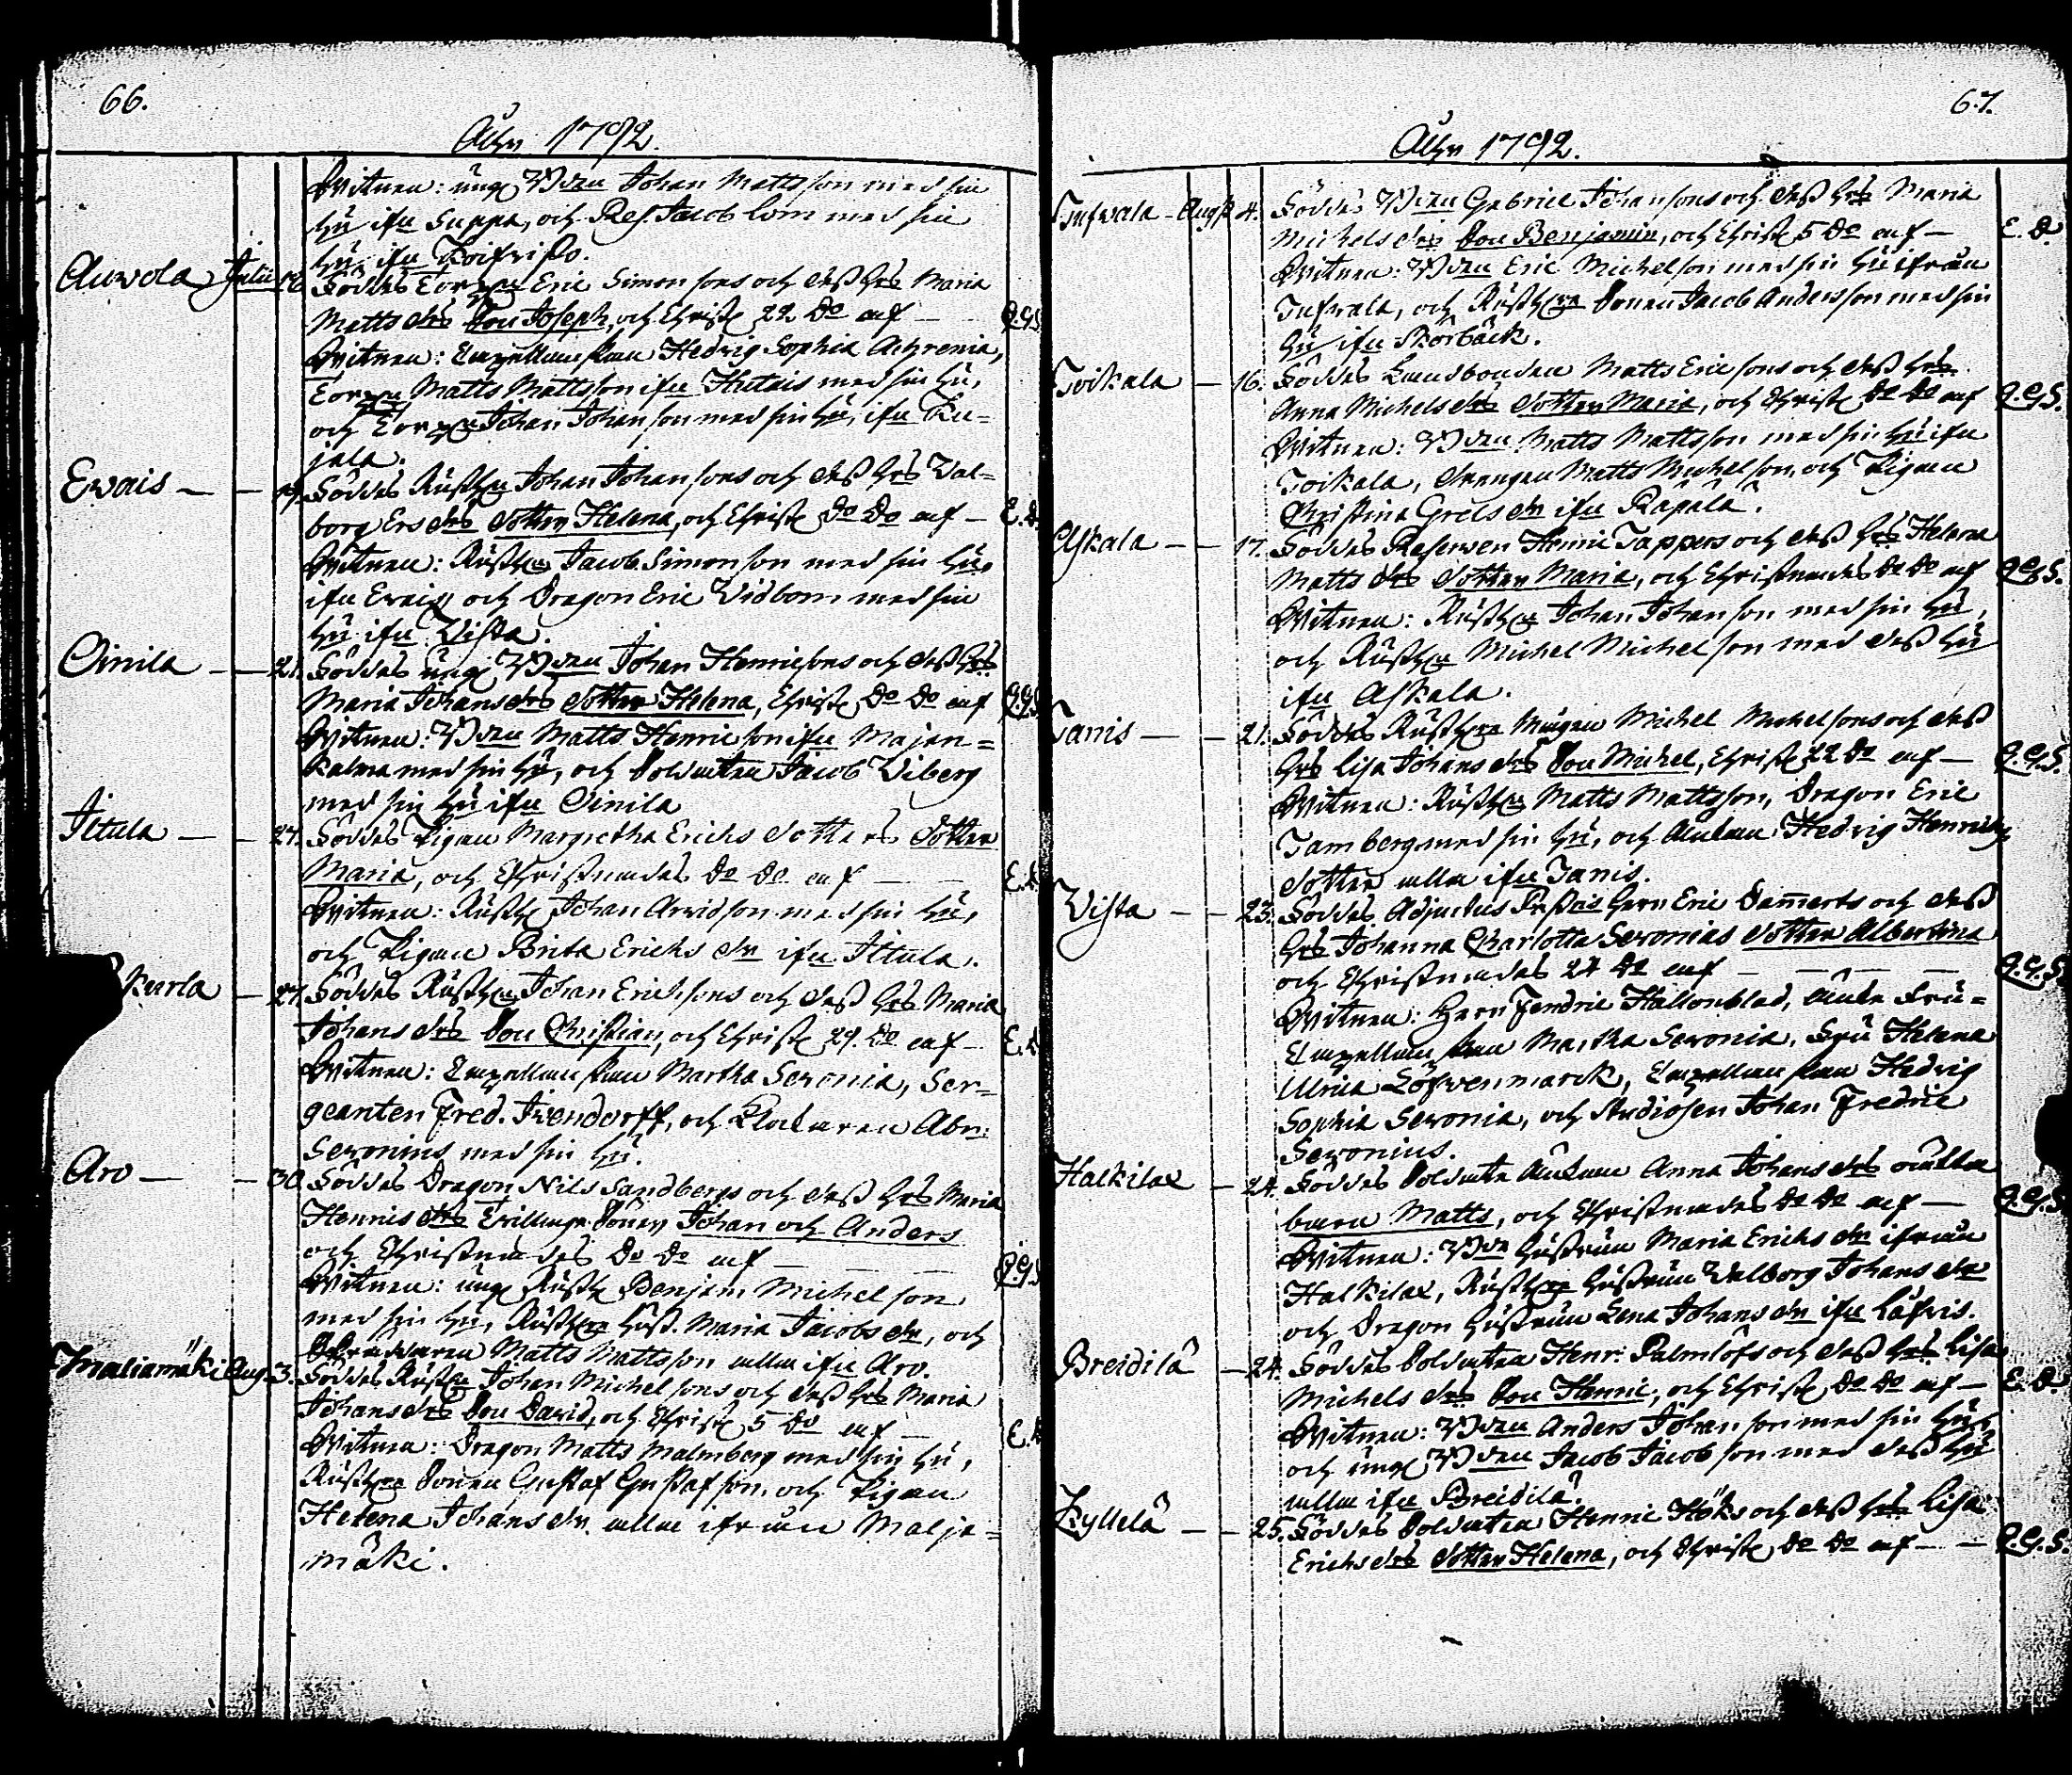 66.
Åhr 1792.
Wittnen: unge Bonden Johan Mattsson med sin
hu ifrn Suppa, och Res. Jacob Lom med sin
hu ifrn
Auvola Julii 18. Föddes Torparen Eric Simonsons och dess hus Maria
Matts drs Son Joseph, och Christ. 22 do af — G.G.S.
Wittnen: Hedvig Sophia Achrenia,
Torparen Matts Mattsson ifrn Hutais med sin hu,
och Torparen Johan Johansson med sin hu, ifrn Ku=
jala.
Evais — — 19. Föddes Rusth. Johan Johansons och dess hus Wal=
borg Ers drs Dotter Helena, och Christ. do do af — E.D.
Wittnen: Rusth. Jacob Simonsson med sin hu,
ifrn Evais, och Dragon Eric Vidbom med sin
hu ifrn Vista.
Oinila — — 21. Föddes unge Bonden Johan Henricsons och dess hus
Maria Johans drs Dotter Helena, Christ. do do af G.G.S.
Wittnen: Bonden Matts Henricson ifrn Majan=
kalma med sin hu, och Soldaten Jacob Viberg
med sin hu ifrn Oinila
Ittula — — 24. Föddes Pigan Margretha Erichs Dotters Dotter
Maria, och Christnades do do af — — E.D.
Wittnen: Rusth. Johan Arvidson med sin hu,
och Pigan Brita Erichs dr ifrn Ittula.
karla — 27. Föddes Rusth. Johan Erichsons och dess hus Maria
Johans drs Son Christian, och Christ. 29. do af — E.D.
Wittnen: Martha Seronia, Ser=
geanten Fred. Ivendorff, och Klockaren Abr:
Seronius med sin hu.
Aro — — 30. Föddes Dragon Nils Sandbergs och dess hus Maria
Henrics drs Tvillinge Söner Johan och Anders
och Christnades do do af — — — G.G.S.
Wittnen: unge Rusth. Benjam. Michelson
med sin hu, Rusth. Hust. Maria Jacobs dr, och
Matts Mattsson alla ifrn Aro.
Maliamäki Aug. 3. Föddes Rusth. Johan Michelsons och dess hus Maria
Johans drs Son David, och Christ. 5 do af — E.D.
Wittnen: Dragon Matts Malmberg med sin hu,
Rusth. Sonen Gustaf Gustafson, och Pigan
Helena Johans dr alla ifrån Malja=
mäki.
67.
Åhr 1792.
Tufvala — Aug. 4. Föddes Bonden Gabriel Johansons och dess hus Maria
Michels drs Son Benjamin, och Christ. 5 do af — E.D.
Wittnen: Bonden Eric Michelson med sin hu ifrån
Tufvala, och Rusth. Sonen Jacob Andersson med sin
hu ifrn Skörbäck.
Toikala — 16. Föddes Landbonden Matts Ericsons och dess hus
Anna Michels drs Dotter Maria, och Christ. do do af G.G.S.
Wittnen: Bonden Matts Mattsson med sin hu ifrn
Toikala, Drengen Matts Michelson, och Pigan
Christina Grels dr ifrn Rapala.
Askala — — 17. Föddes Reserven Henric Tappers och dess hus Helena
Matts drs Dotter Maria, och Christnades do do af G.G.S.
Wittnen: Rusth. Johan Johanson med sin hu,
och Rusth. Michel Michelson med dess hu
ifrn Askala.
Tanis — — 21. Föddes Rusth. Mågen Michel Michelsons och dess
hus Lisa Johans drs Son Michel, Christ. 22 do af — G.G.S.
Wittnen: Rusth. Matts Mattsson, Dragon Eric
Tamberg med sin hu, och Enkan Hedvig Henrichs
Dotter alla ifrn Tanis.
Vista — — 23. Föddes Adjunctus Herr Eric Dammerts och dess
hus Johanna Charlotta Seronias Dotter Albertina
och Christnades 24 do af — — — — G.G.S.
Wittnen: Herr Fendric Hallonblad, Enke Fru=
Martha Seronia, Fru Helena
Ulrica Löfvenmarck, Hedvig
Sophia Seronia, och Studiosen Johan Fredric
Seronius.
Halkilax — 24. Föddes Soldate Enkan Anna Johans drs oäkta
barn Matts, och Christnades do do af — G.G.S.
Wittnen: Hustrun Maria Erichs dr ifrån
Halkilax, Rusth. Hustrun Valborg Johans dr
och Dragon Hustrun Lena Johans dr ifrn Löfvis.
Breidilä — 24. Föddes Soldaten Henr: Palmlöfs och dess hus Lisa
Michels drs Son Henric, och Christ. do do af — E.D.
Wittnen: Bonden Anders Johanson med sin hu,
och unge Bonden Jacob Jacobson med dess hu
alla ifrn Breidilä.
Kyllelä — — 25. Föddes Soldaten Henric Höks och dess hus Lisa
Erichs drs Dotter Helena, och Christ. do do af — — G.G.S.